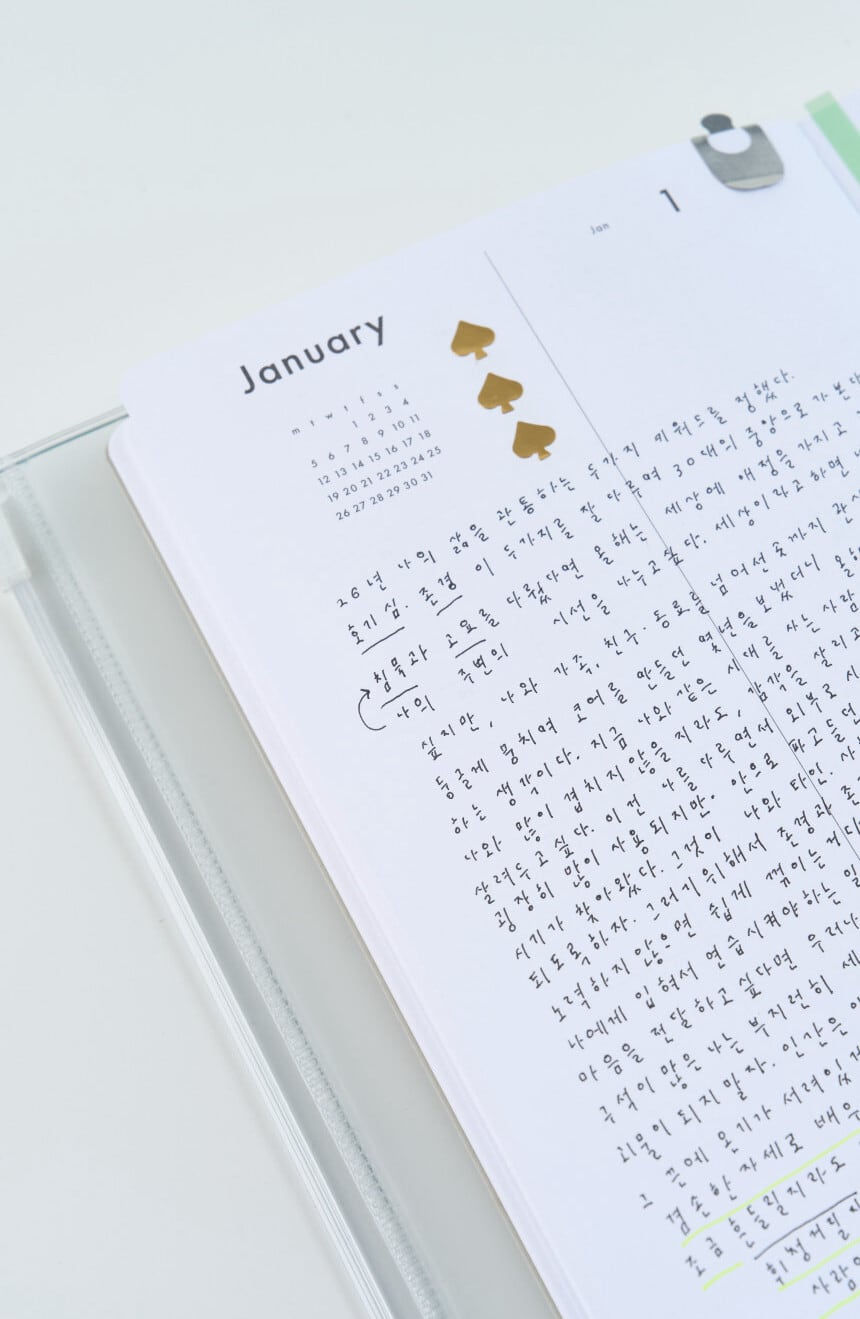 Jan 1
January
m t w t f s s
1 2 3 4
5 6 7 8 9 10 11
12 13 14 15 16 17 18
19 20 21 22 23 24 25
26 27 28 29 30 31
26년 나의 삶을 관통하는 두가지 키워드를 정했다.
호기심. 존경 이 두가지를 잘 다루며 30대의 중앙으로 가본다
침묵과 고요를 다뤘다면 올해는 세상에 애정을 가지고
나의 주변의 시선을 나누고싶다. 세상이라고 하면
싶지만, 나와 가족, 친구. 동료를 넘어선 숲까지 관
둥글게 뭉치며 코어를 만들던 몇년을 보냈더니
하는 생각이다. 지금 나와 같은 시대를 사는 사람
나와 많이 겹치지 않을지라도, 감각을 살리고
살려두고 싶다. 이건 나를 다루면서 외부로 시
굉장히 많이 사용되지만. 안으로 파고들던
시기가 찾아왔다. 그것이 나와 타인.
되도록 하자. 그러기위해서 존경과
노력하지 않으면 쉽게 꺾이는
나에게 입혀서 연습시켜야하는
마음을 전달하고 싶다면 우리
구석이 많은 나는 부지런히
괴물이 되지말자. 인간은
그 끈에 온기가 서려있
겸손한 자세로 배우
조금 흔들릴지라도
휘청거릴지
사람